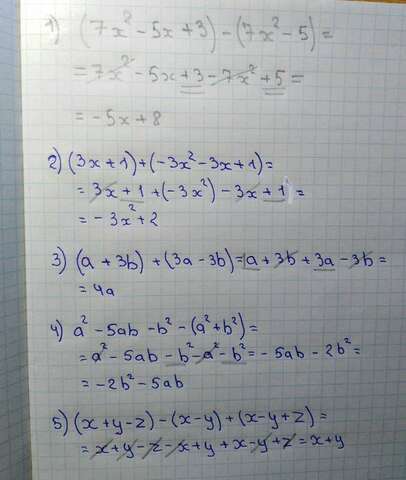 1) (7x² - 5x + 3) - (7x² - 5) =
= 7x² - 5x + 3 - 7x² + 5 =
= - 5x + 8
2) (3x + 1) + (-3x² - 3x + 1) =
= 3x + 1 + (-3x²) - 3x + 1 =
= - 3x² + 2
3) (a + 3b) + (3a - 3b) = a + 3b + 3a - 3b =
= 4a
4) a² - 5ab - b² - (a² + b²) =
= a² - 5ab - b² - a² - b² = - 5ab - 2b² =
= - 2b² - 5ab
5) (x + y - z) - (x - y) + (x - y + z) =
= x + y - z - x + y + x - y + z = x + y